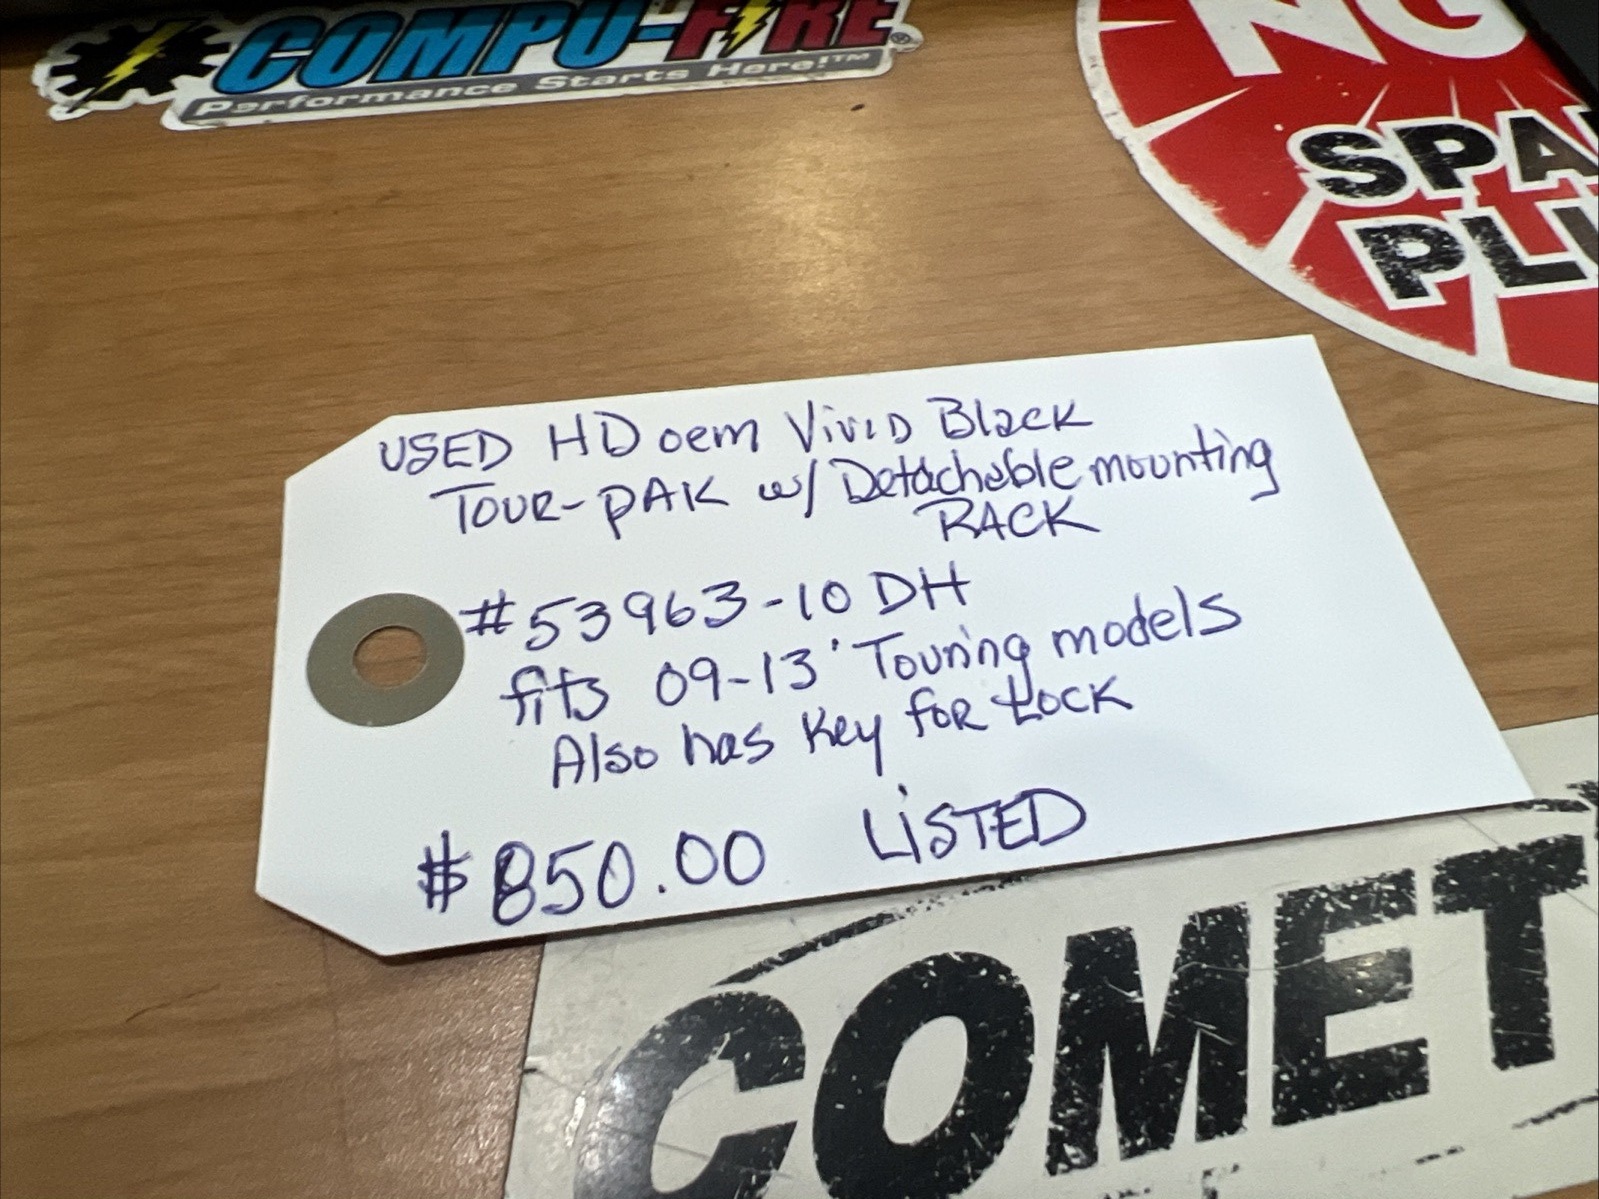 COMPU-FIRE®
Performance Starts Here!™
NG
SPA
PLU
USED HD oem Vivid Black
Tour-PAK w/ Detachable mounting
RACK
#53963-10 DH
fits 09-13' Touring models
Also has Key for Lock
$850.00 LiSTED
COMET